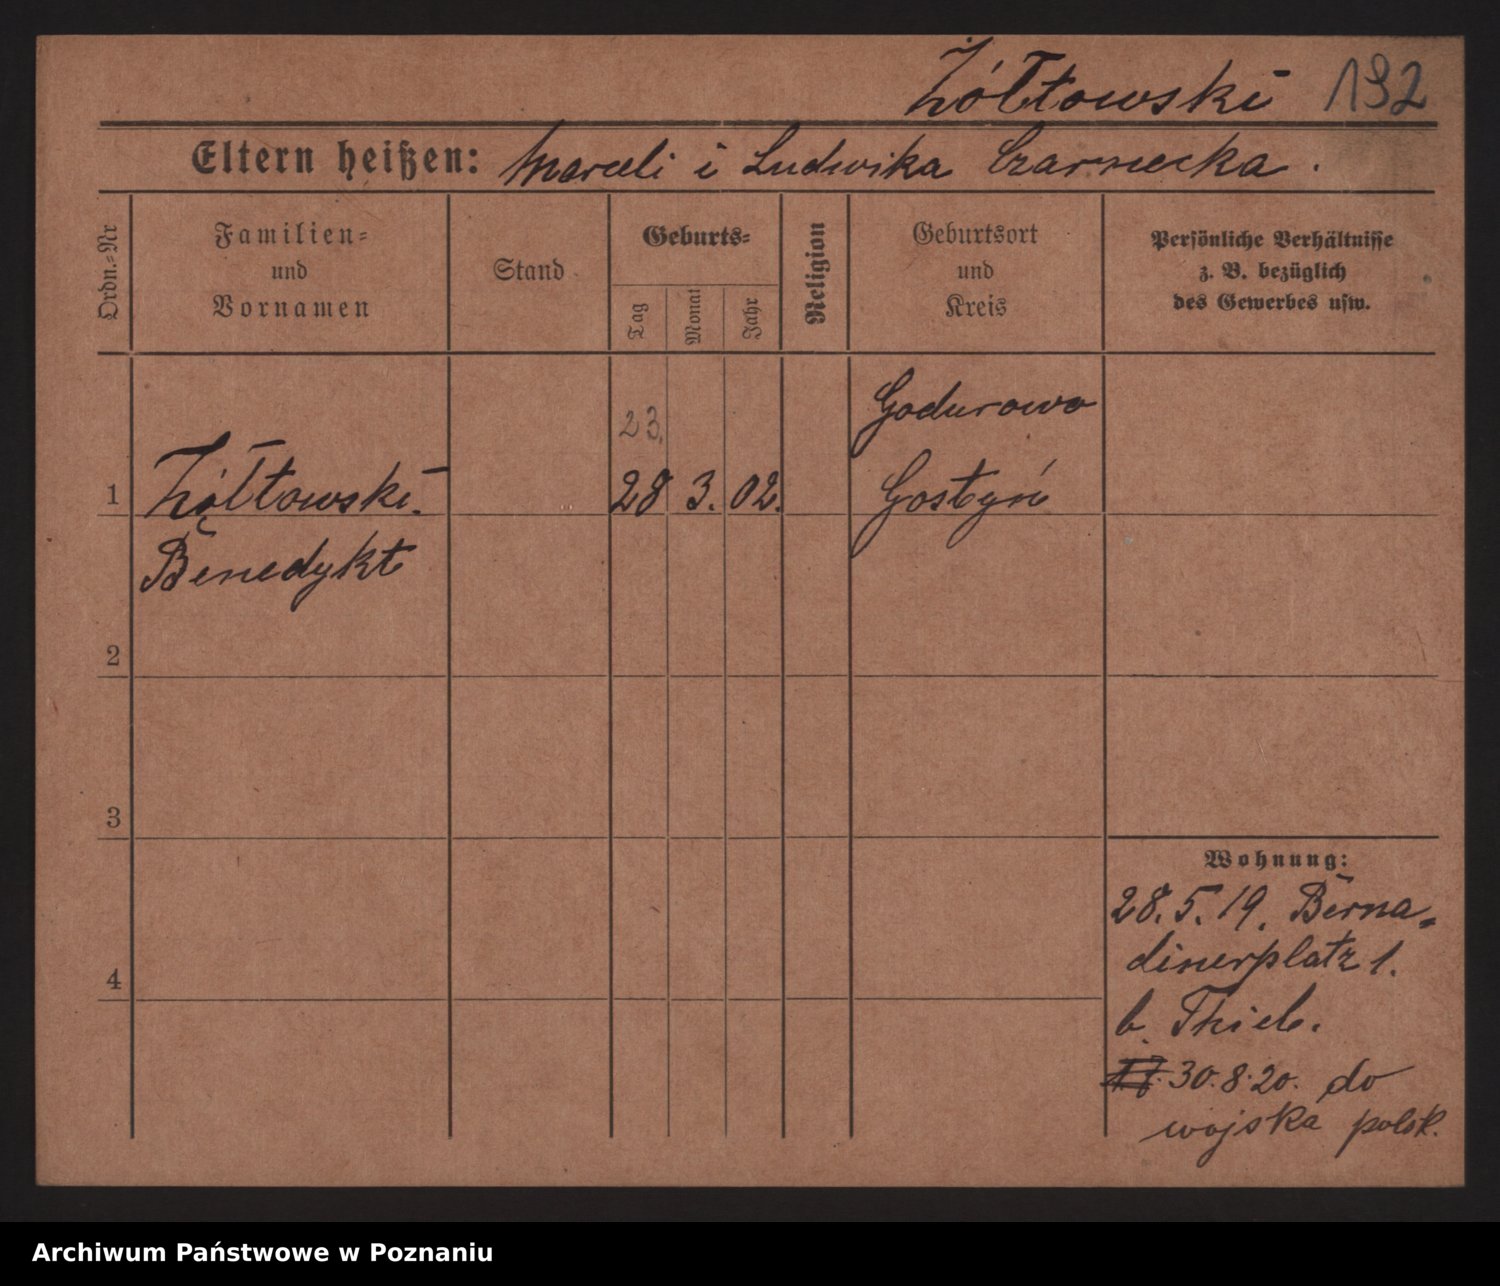 Żółtowski 192
Eltern heißen: Marceli i Ludwika Czarnecka.
Ordn.-Nr
Familien-
und
Vornamen
Stand
Geburts-
Tag
Monat
Jahr
Religion
Geburtsort
und
Kreis
Persönliche Verhältnisse
z. B. bezüglich
des Gewerbes usw.
23.
Godurowo
1 Żółtowski. 28 3. 02. Gostyń
Benedykt
2
3
4
Wohnung:
28. 5. 19. Berna-
dinerplatz 1.
b. Thiel.
30. 8. 20. do
wojska polsk.
Archiwum Państwowe w Poznaniu